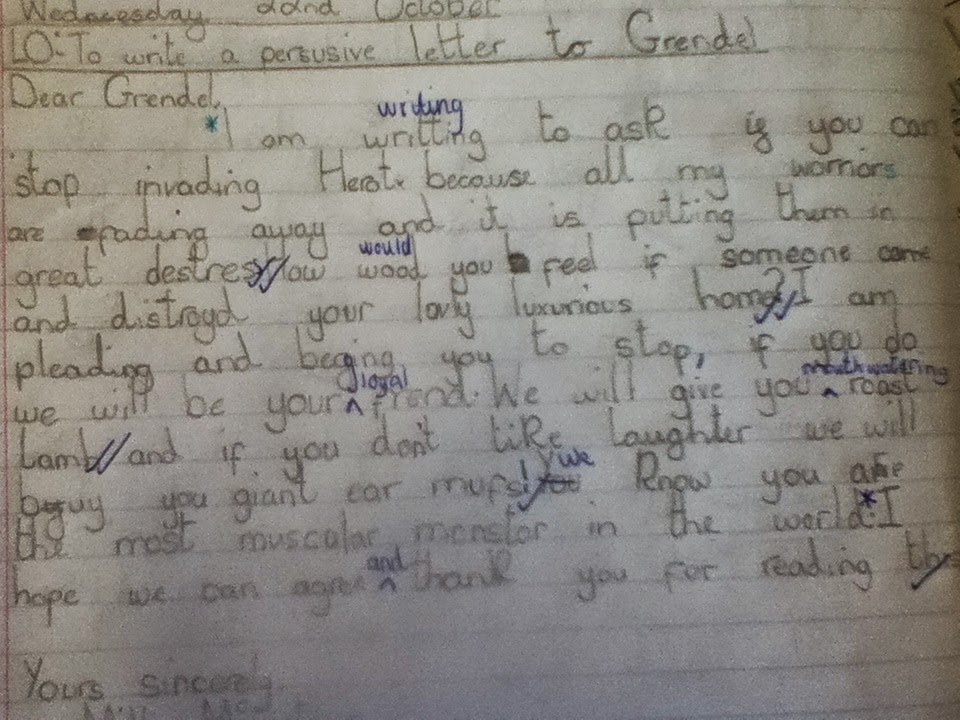 Wednesday 22nd October
LO: To write a persusive letter to Grendel
Dear Grendel,
writing
*I am writting to ask if you can
stop invading Herot. because all my worriors
are fading away and it is putting them in
would
great destres//How wood you feel if someone came
and distroyd your lovly luxurious home?//I am
pleading and begging you to stop, if you do
loyal mouthwatering
we will be your ^ frend. We will give you ^ roast
Lamb// and if you don't like laughter we will
! we
buy you giant ear mufs you know you are
the most muscular monstor in the world.*I
and
hope we can agree ^ thank you for reading this
Yours sincerely